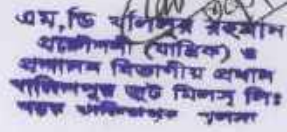 এম,ডি খলিলুর রহমান
প্রকৌশলী (যান্ত্রিক) ও
প্রশাসন বিভাগীয় প্রধান
খালিশপুর জুট মিলস্ লিঃ
খুলনা